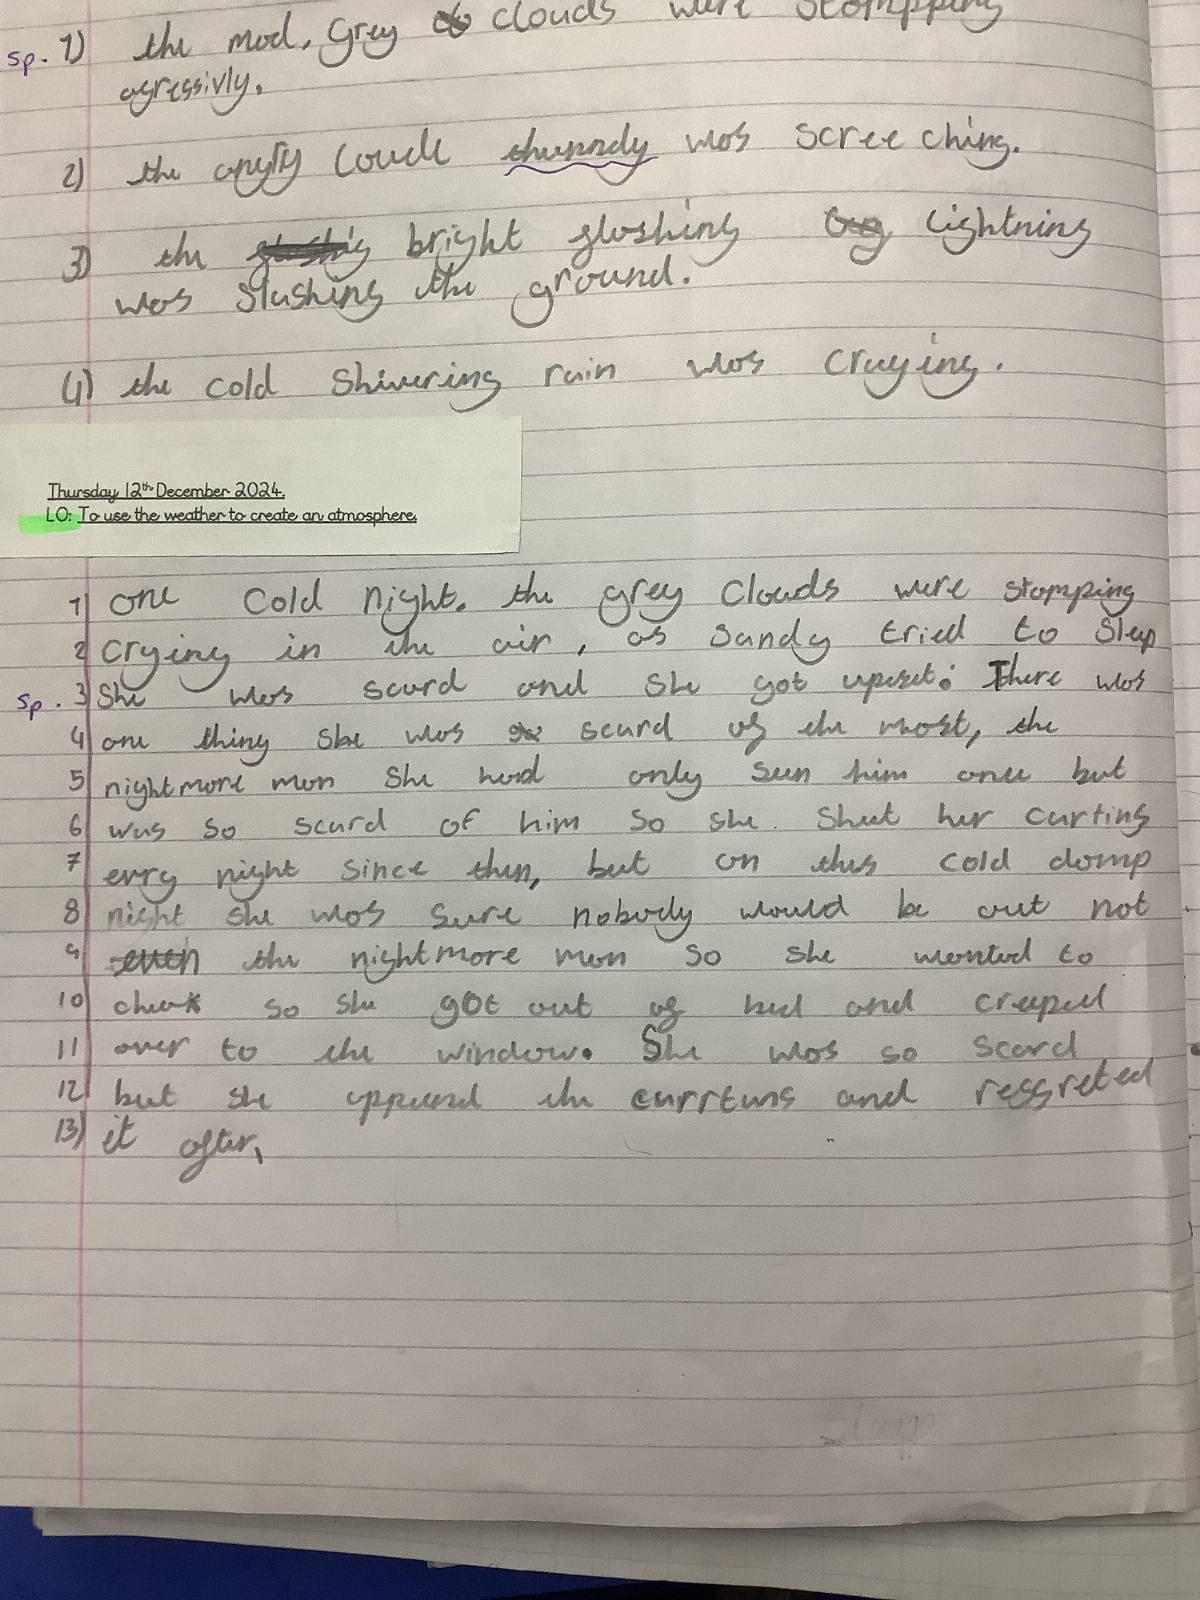 sp. 1) the mad, Grey clouds were stompping
agressivly.
2) the angry loude thunndy was screeching.
3) the bright flashing lightning
was slashing the ground.
4) the cold shivering rain was craying.
Thursday 12th December 2024.
LO: To use the weather to create an atmosphere.
1 one cold night. the grey clouds were stomping
2 crying in the air, as sandy tried to sleep
sp. 3 She was scard and she got upset. There was
4 one thing she was scard of the most, the
5 nightmare man she had only seen him once but
6 was so scard of him so she shut her curtins
7 evry night since then, but on this cold damp
8 night she was sure nobody would be out not
9 even the nightmare man so she wanted to
10 check so she got out of bed and creeped
11 over to the window. She was so scard
12 but she oppened the currtens and ressreted
13) it after,
sleep